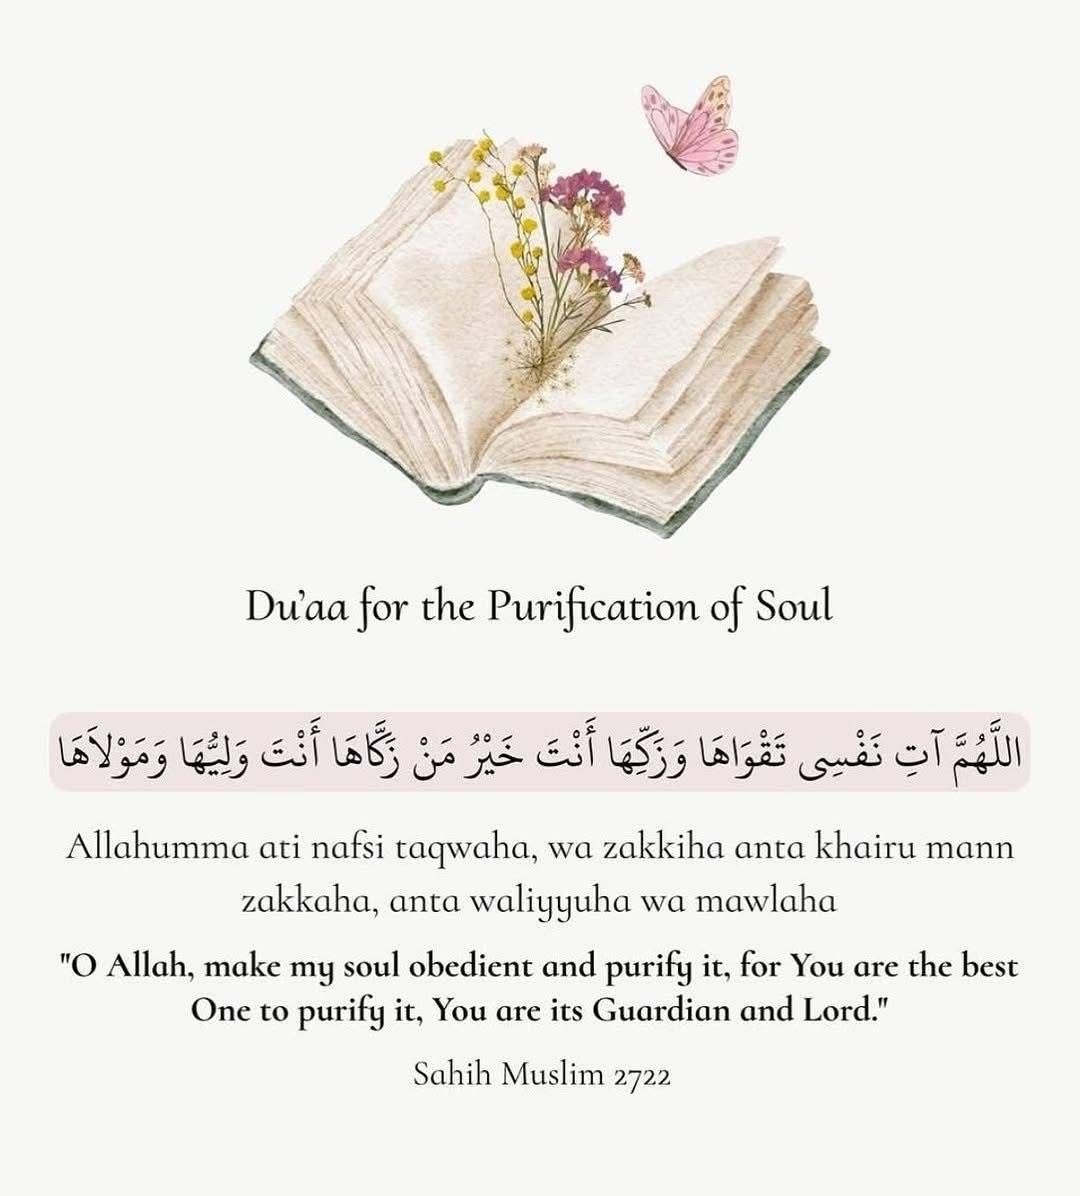 Du'aa for the Purification of Soul
اللَّهُمَّ آتِ نَفْسِى تَقْوَاهَا وَزَكِّهَا أَنْتَ خَيْرُ مَنْ زَكَّاهَا أَنْتَ وَلِيُّهَا وَمَوْلاَهَا
Allahumma ati nafsi taqwaha, wa zakkiha anta khairu mann
zakkaha, anta waliyyuha wa mawlaha
"O Allah, make my soul obedient and purify it, for You are the best
One to purify it, You are its Guardian and Lord."
Sahih Muslim 2722